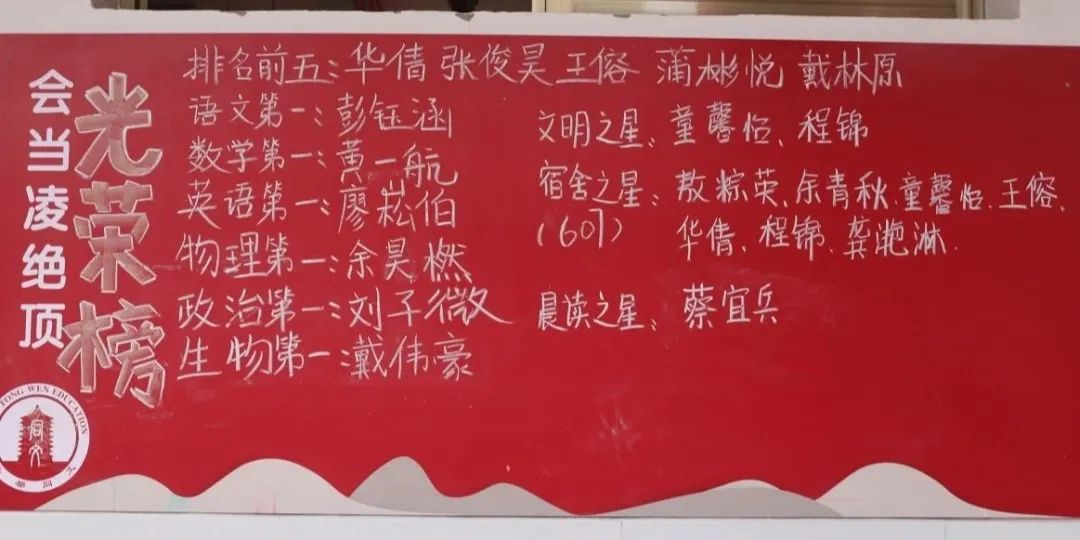 会当凌绝顶
光荣榜
排名前五：华倩 张俊昊 王傛 蒲彬悦 戴林原
语文第一：彭钰涵
数学第一：黄一航
英语第一：廖崧伯
物理第一：余昊燃
政治第一：刘子微
生物第一：戴伟豪
文明之星：童馨怡、程锦
宿舍之星：敖粽英、余青秋、童馨怡、王傛、
（607） 华倩、程锦、龚滟淋.
晨读之星：蔡宜兵
TONG WEN EDUCATION